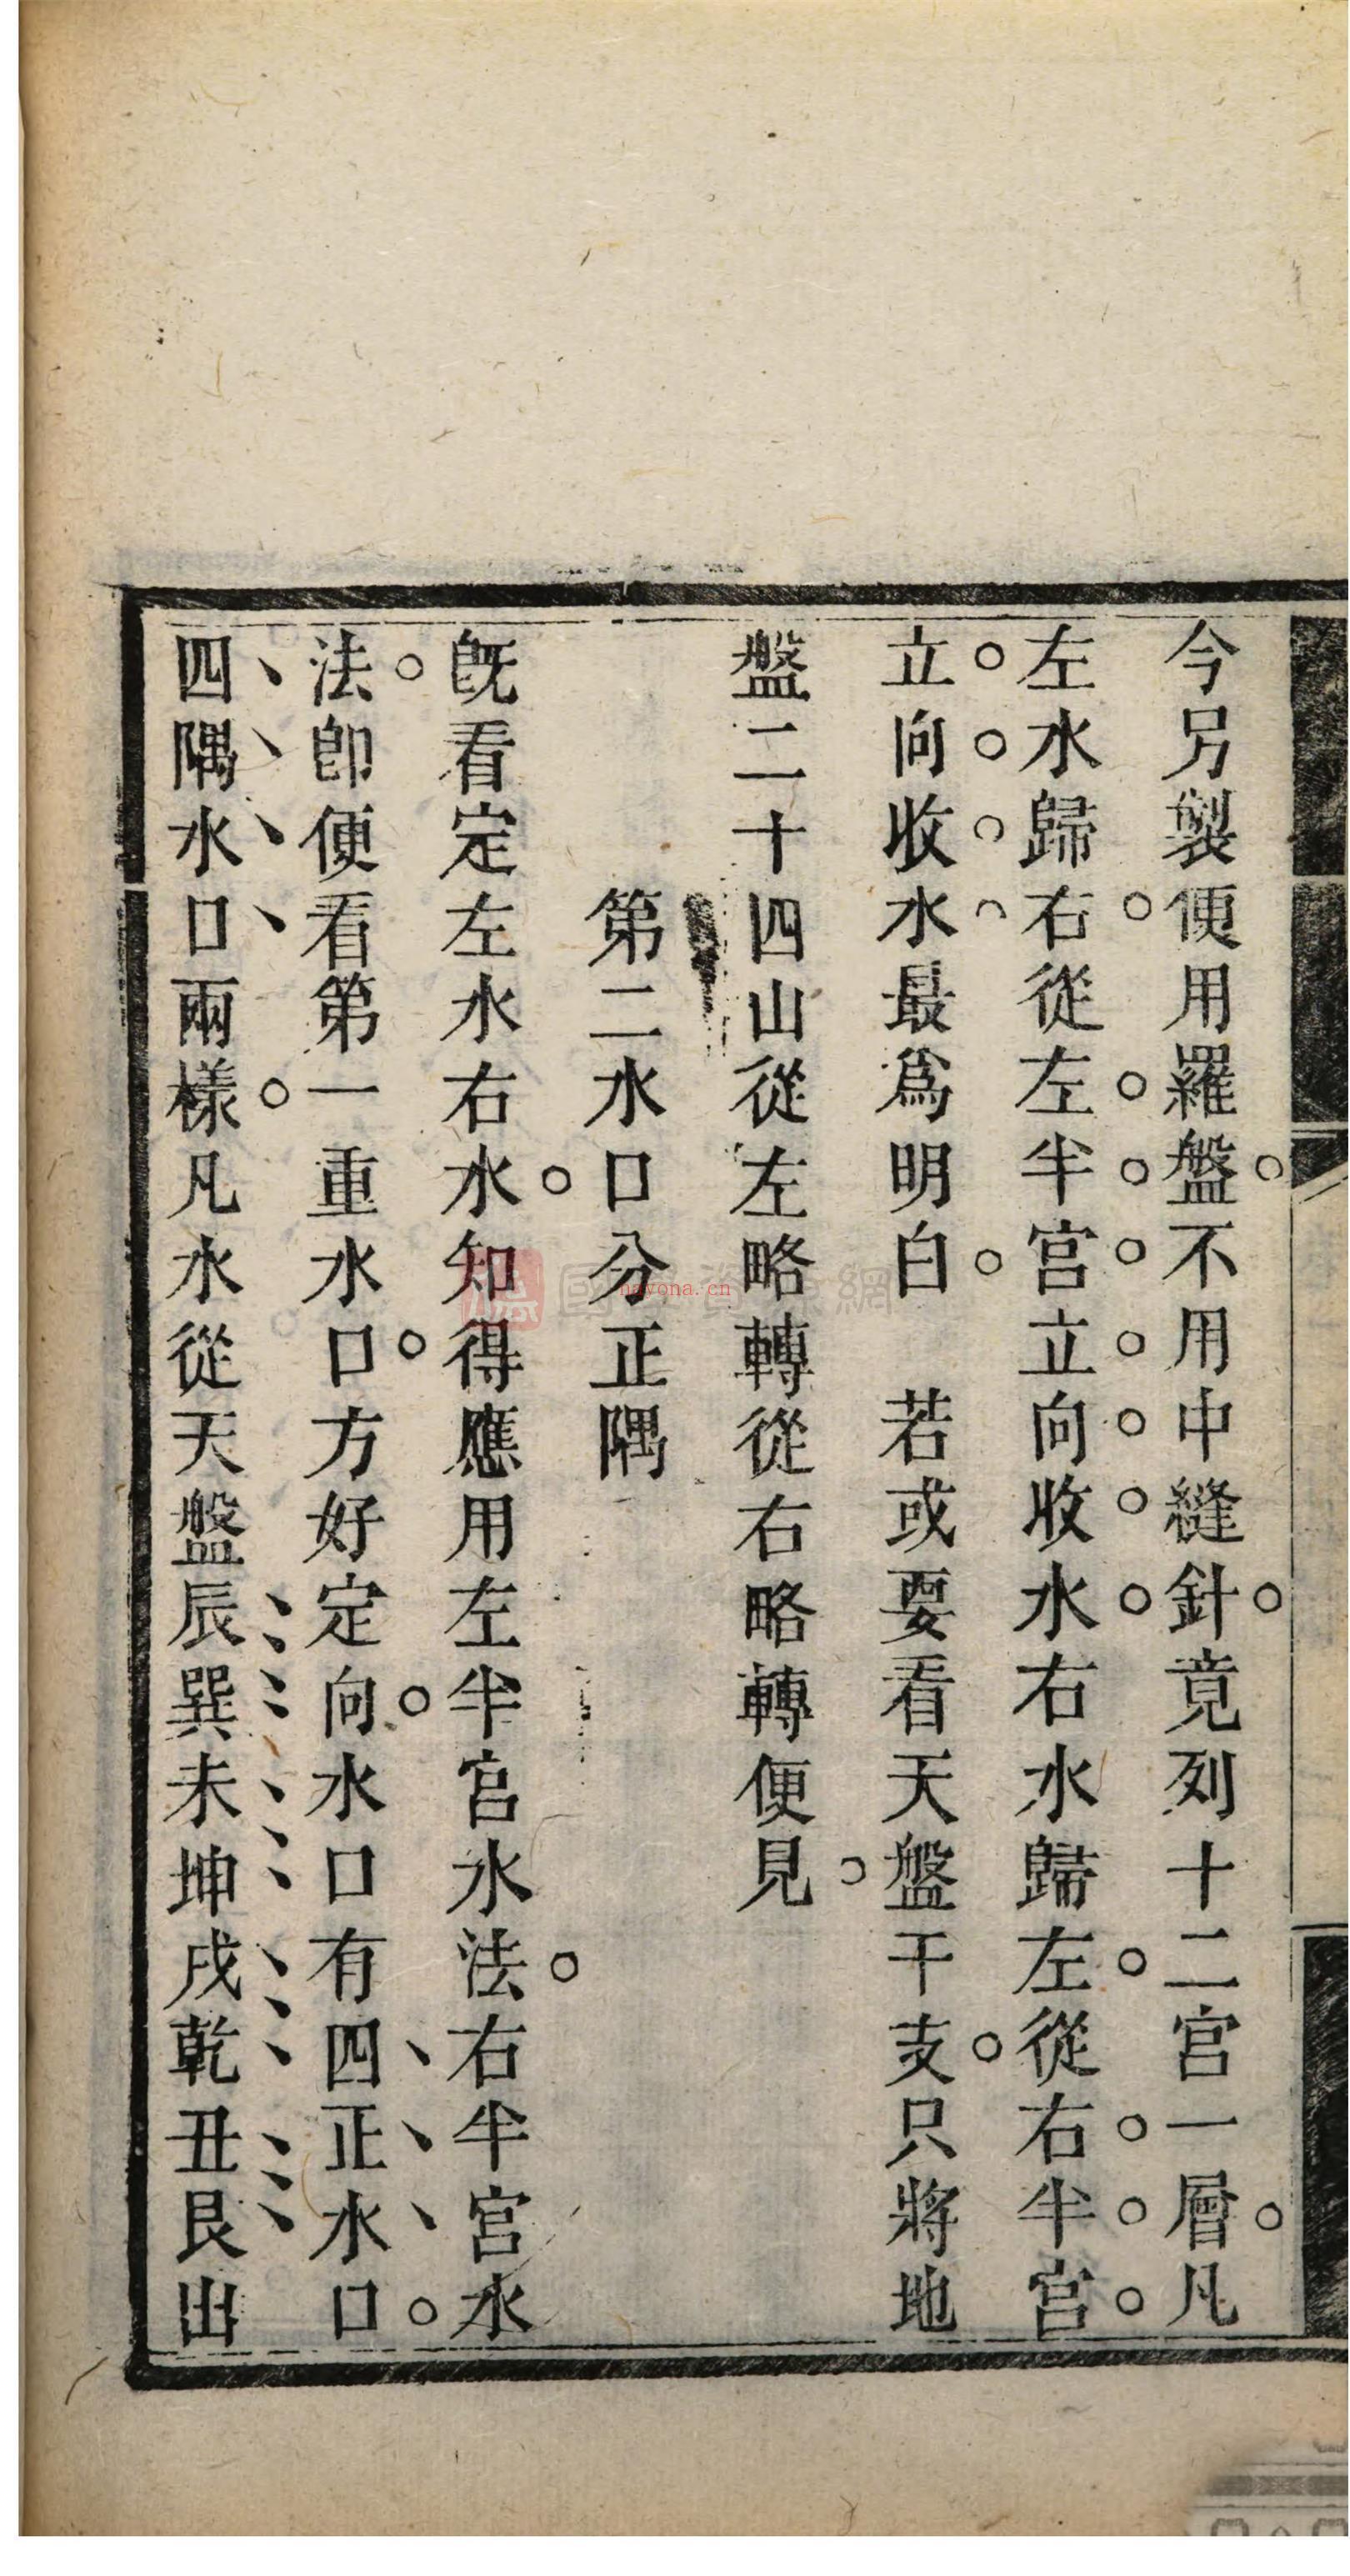 今另製便用羅盤不用中縫針竟列十二宫一層凡
左水歸右從左半宫立向收水右水歸左從右半宫
立向收水最爲明白　若或要看天盤干支只將地
盤二十四山從左略轉從右略轉便見
第二水口分正隅
旣看定左水右水知得應用左半宫水法右半宫水
法卽便看第一重水口方好定向水口有四正水口
四隅水口兩樣凡水從天盤辰巽未坤戌乾丑艮出
nayona.cn